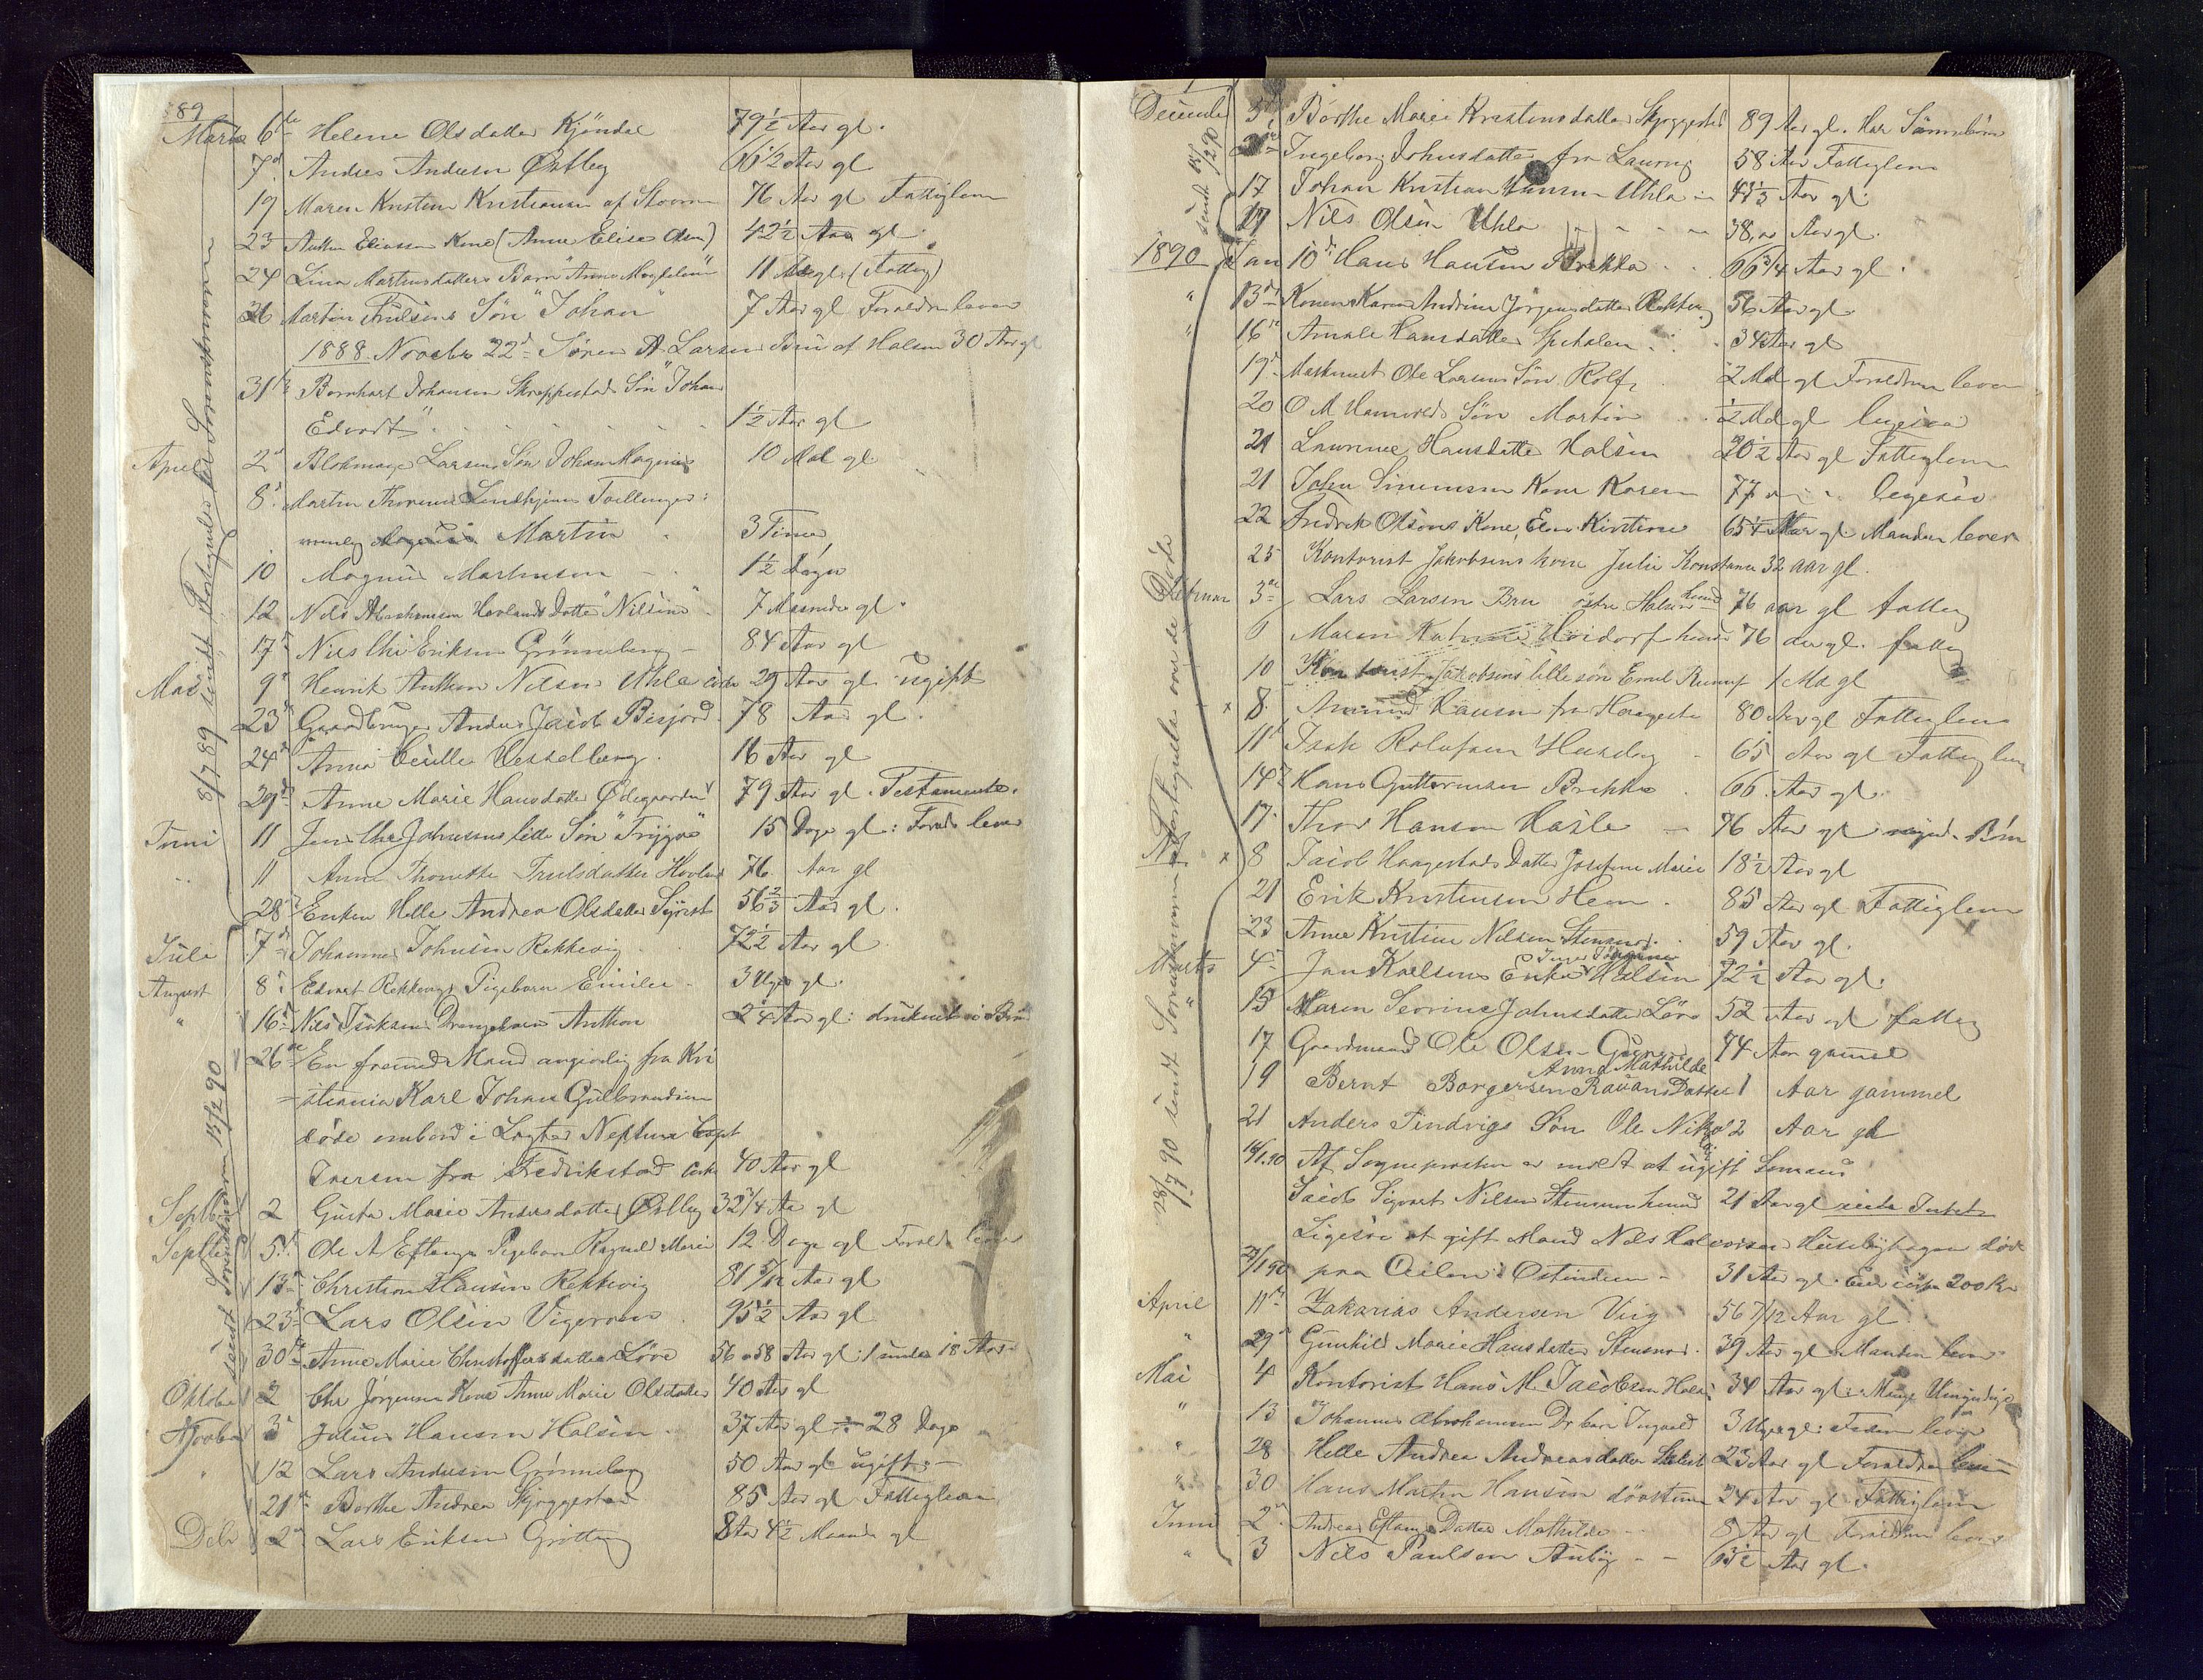 89
Marts 6te Helene Olsdatter Kjöndal 79 1/2 Aar gl.
7d. Andreas Andersen Østby 66 1/2 Aar gl
19 Maren Kristine Kristiansen af Stavern 76 Aar gl Fattiglem
23 Anthon Eliassen Kone (Anne Elise Olsen) 42 1/2 Aar gl.
24 Lina Martinsdatters Barn "Anna Magdelene" 11 gl. (Fattig)
26 Martin Trulsens Søn "Johan" 7 Aar gl Forældre lever
1888. Novebr 22d Sören A Larsen Bru af Halsen 30 Aar gl
31te Bernhart Johansen Skreppestad Søn "Johan
Edvart" 1 1/2 Aar gl
April 2d Blokmager Larsens Søn Johan Magnus 10 Md gl.
8d. Martin Thorsens Lindhjem Tvillinger:
nemlig Martin 3 Timer
10 Magnus Martinsen 1 1/2 Døgn
12 Nils Abrahamsen Hovlands Datter "Nilsine" 7 Maaneder gl.
17de Nils Chr Eriksen Grønneberg 84 Aar gl
Mai 9d Henrik Anthon Nilsen Uhla 29 Aar gl ugift
23d Gaardbruger Anders Jacob Bisjord 78 Aar gl.
24d Anna Cecilie Hesselberg. 16 Aar gl
29d Anne Marie Hansdatter Ødegaarden 79 Aar gl. Testamente.
Juni 11 Jens Chr Johnsens lille Søn "Trygve" 15 Dage gl: Foreld. lever
11 Anne Thonette Trulsdatter Hovland 76. Aar gl
28d Enken Helle Andrea Olsdatter Sjörest 56 2/3 Aar gl.
Juli 7de Johannes Johnsen Rekkevig 72 1/2 Aar gl
August 8d. Edvart Rekkevigs Pigebarn Emilie 3 Uger gl.
" 16d Nils Isaksen Drengebarn Anthon 2 1/4 Aar gl: druknet i Brø
26de En fremmed Mand angivelig fra Kri
stiania Karl Johan Gulbrandsen
döde ombord i Lægter Neptun Capt
Iversen fra Fredrikstad Cirka 40 Aar gl
Septbr 2 Gusta Marie Andersdatter Østby 32 3/4 Aar gl
Septbr 5d. Ole A Eftangs Pigebarn Ragnild Marie 12 Dage gl Foreld. lever
13d Christian Hansen Rekkevig 81 5/12 Aar gl
23d Lars Olsen Vigeroen 95 1/2 Aar gl
30te Anne Marie Christoffersdatter Løve 56 a 58 Aar gl: 1 under 18 Aar
Oktober 2 Chr Jörgensen Kone Anne Marie Olsdatter 40 Aar gl
Novbr 3d Julius Hansen Halsen 37 Aar gl 28 Dage
" 12 Lars Andersen Grønneberg 50 Aar gl ugift.
21d Berthe Andrea Skjeggestad 85 Aar gl Fattiglem
Debr 2d Lars Eriksen Grøtting 8 Aar 4 1/2 Maaned gl
8/7 89 sendt Fortegnelse til Sorenskriveren
sendt Sorenskriveren 15/2 90
December 5d Börthe Marie Kristensdatter Skjeggestad 89 Aar gl. Har Sönnebörn
Ingeborg Johnsdatter fra Laurvig 58 Aar Fattiglem
17 Johan Kristian Hansen Uhla 43 1/3 Aar gl.
19 Nils Olsen Uhla 38 Aar gl.
1890 Jan 10d Hans Hansen Brekke 66 3/4 Aar gl.
" 13d Konen Karen Andrine Jörgensdatter Rekkevig 56 Aar gl.
" 16de Amale Hansdatter Spetalen 34 Aar gl
19d. Maskinist Ole Larsens Søn Rolf 2 Md gl Foreldrene lever
20 O M Hamreds Søn Martin 1/2 Md gl ligesaa
21 Laurence Hansdatter Halsen 20 1/2 Aar gl Fattiglem
21 John Simensen Kone Karen 77 " " ligesaa
22 Fredrik Olsens Kone, Elen Kirstine 65 1/4 Aar gl Manden lever
25 Kontorist Jakobsens kone Julie Konstance 32 aar gl.
Februar 3de Lars Larsen Bru østre Halsen 76 aar gl fattig
6 Maren 76 aar gl. fattig
10 Kontorist Jakobsens lille søn Emil 1 Md gl
x 8. Amund Hansen fra Haagestad 80 Aar gl Fattiglem
11d Isak Rolufsen Huseby 65 Aar gl Fattiglem
14d Hans Guttormsen Brekke 66 Aar gl.
17. Thor Hansen Hasle 76 Aar gl Børn
x 8 Jacob Haagestads Datter Josefine Marie 18 1/2 Aar gl
21 Erik Kristensen Hem 85 Aar gl Fattiglem
23 Anne Kristine Nilsen Stensnes. 59 Aar gl.
Marts 4de Jan Karlsens Enke Halsen 72 1/2 Aar gl.
" 15 Maren Severine Johnsdatter Löve 52 Aar gl fattig
17 Gaardmand Ole Olsen 74 Aar gammel
Anna Mathilde
19 Bernt Borgersen Rauans Datter 1 Aar gammel
21 Anders Tindvigs Søn Ole Nikolai 2 Aar gl
16/1.90 Af Sognepresten er meldt at ugift Sømand
Jacob Sigvart Nilsen 21 Aar gl eiede Intet
Ligesaa at gift Mand Nils Halvorsen Husebyhagen døde
27/1 90 paa Ceilon i Ostindien 31 Aar gl. 200 Kr
April 11te Zakarias Andersen Viig 56 7/12 Aar gl.
" 29 Gunhild Marie Hansdatter Stensnes. 39 Aar gl Manden lever
Mai 4 Kontorist Hans M. Jacobsen Halsen 34 Aar gl: Mange Umyndige
" 13 Johannes Abrahamsen Drbarn Ingvald 3 Uger gl: Faderen lever
" 28 Helle Andrea Andreasdatter 23 Aar gl Forældre lever
" 30 Hans Martin Hansen døvstum 24 Aar gl Fattiglem
Juni 2d. Andreas Eftangs Datter Mathilde 8 Aar gl Foreldrene lever
" 3 Nils Paulsen Auby 63 1/2 Aar gl.
sendt 15/2 90
28/7 90 sendt Sorenskriveren Fortegnelse over de Døde